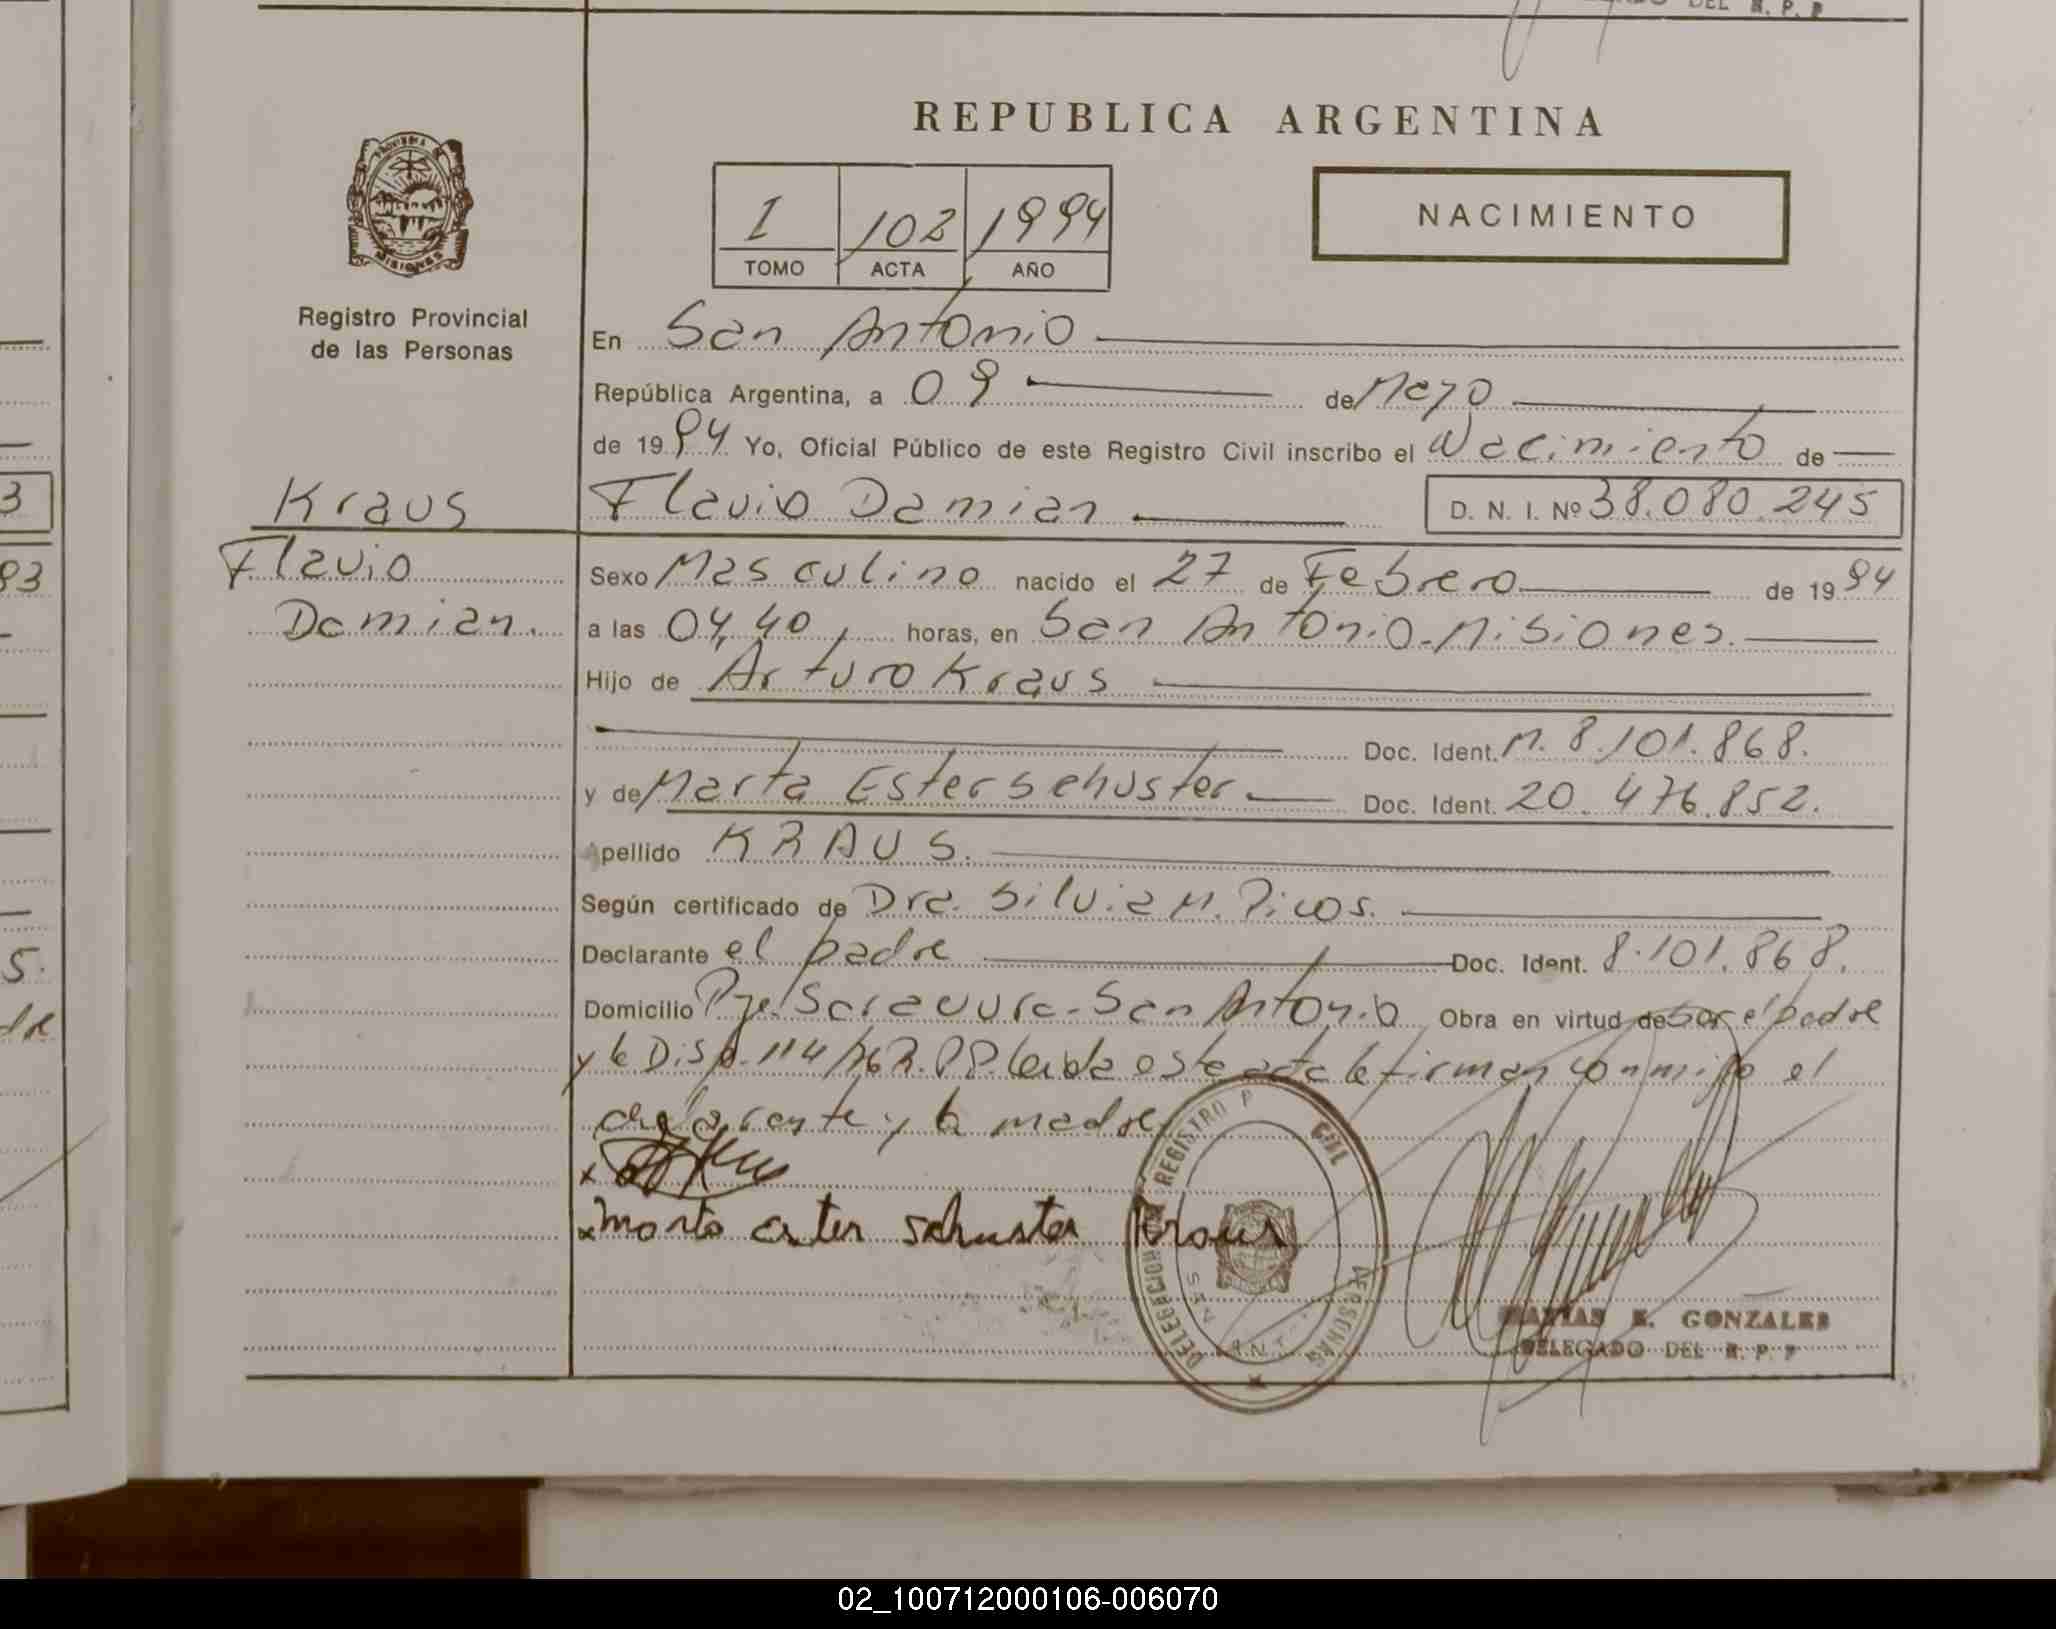 DEL R. P. P
REPUBLICA ARGENTINA
PROVINCIA DE
MISIONES
Registro Provincial
de las Personas
I 102 1994
TOMO ACTA AÑO
NACIMIENTO
En San Antonio
República Argentina, a 09 de Mayo
de 1994 Yo, Oficial Público de este Registro Civil inscribo el Nacimiento de
Kraus Flavio Damian D. N. I. Nº 38.080.245
Flavio
Damian.
Sexo Masculino nacido el 27 de Febrero de 1994
a las 04,40 horas, en San Antonio-Misiones.
Hijo de Arturo Kraus
Doc. Ident. M. 8.101.868.
y de Marta Ester Schuster Doc. Ident. 20.476.852.
Apellido KRAUS.
Según certificado de Dra. Silvia M. Picos.
Declarante el padre Doc. Ident. 8.101.868.
Domicilio Pje. San Antonio Obra en virtud de ser el padre
y la Disp. 114/76 R.P.P. leida esta acta la firman conmigo el
declarante y la madre
x
x Marta ester Schuster Kraus
DELEGACION REGISTRO P CIVIL PERSONAS
SAN ANT
MATIAS E. GONZALES
DELEGADO DEL R. P. P
3
93
5.
02_100712000106-006070